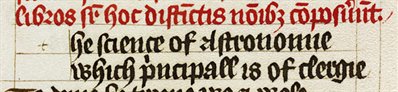 libros sūt hoc distīctis noībȝ cōposūnt.
he science of Astronomie
which p̄ncipall is of clergie